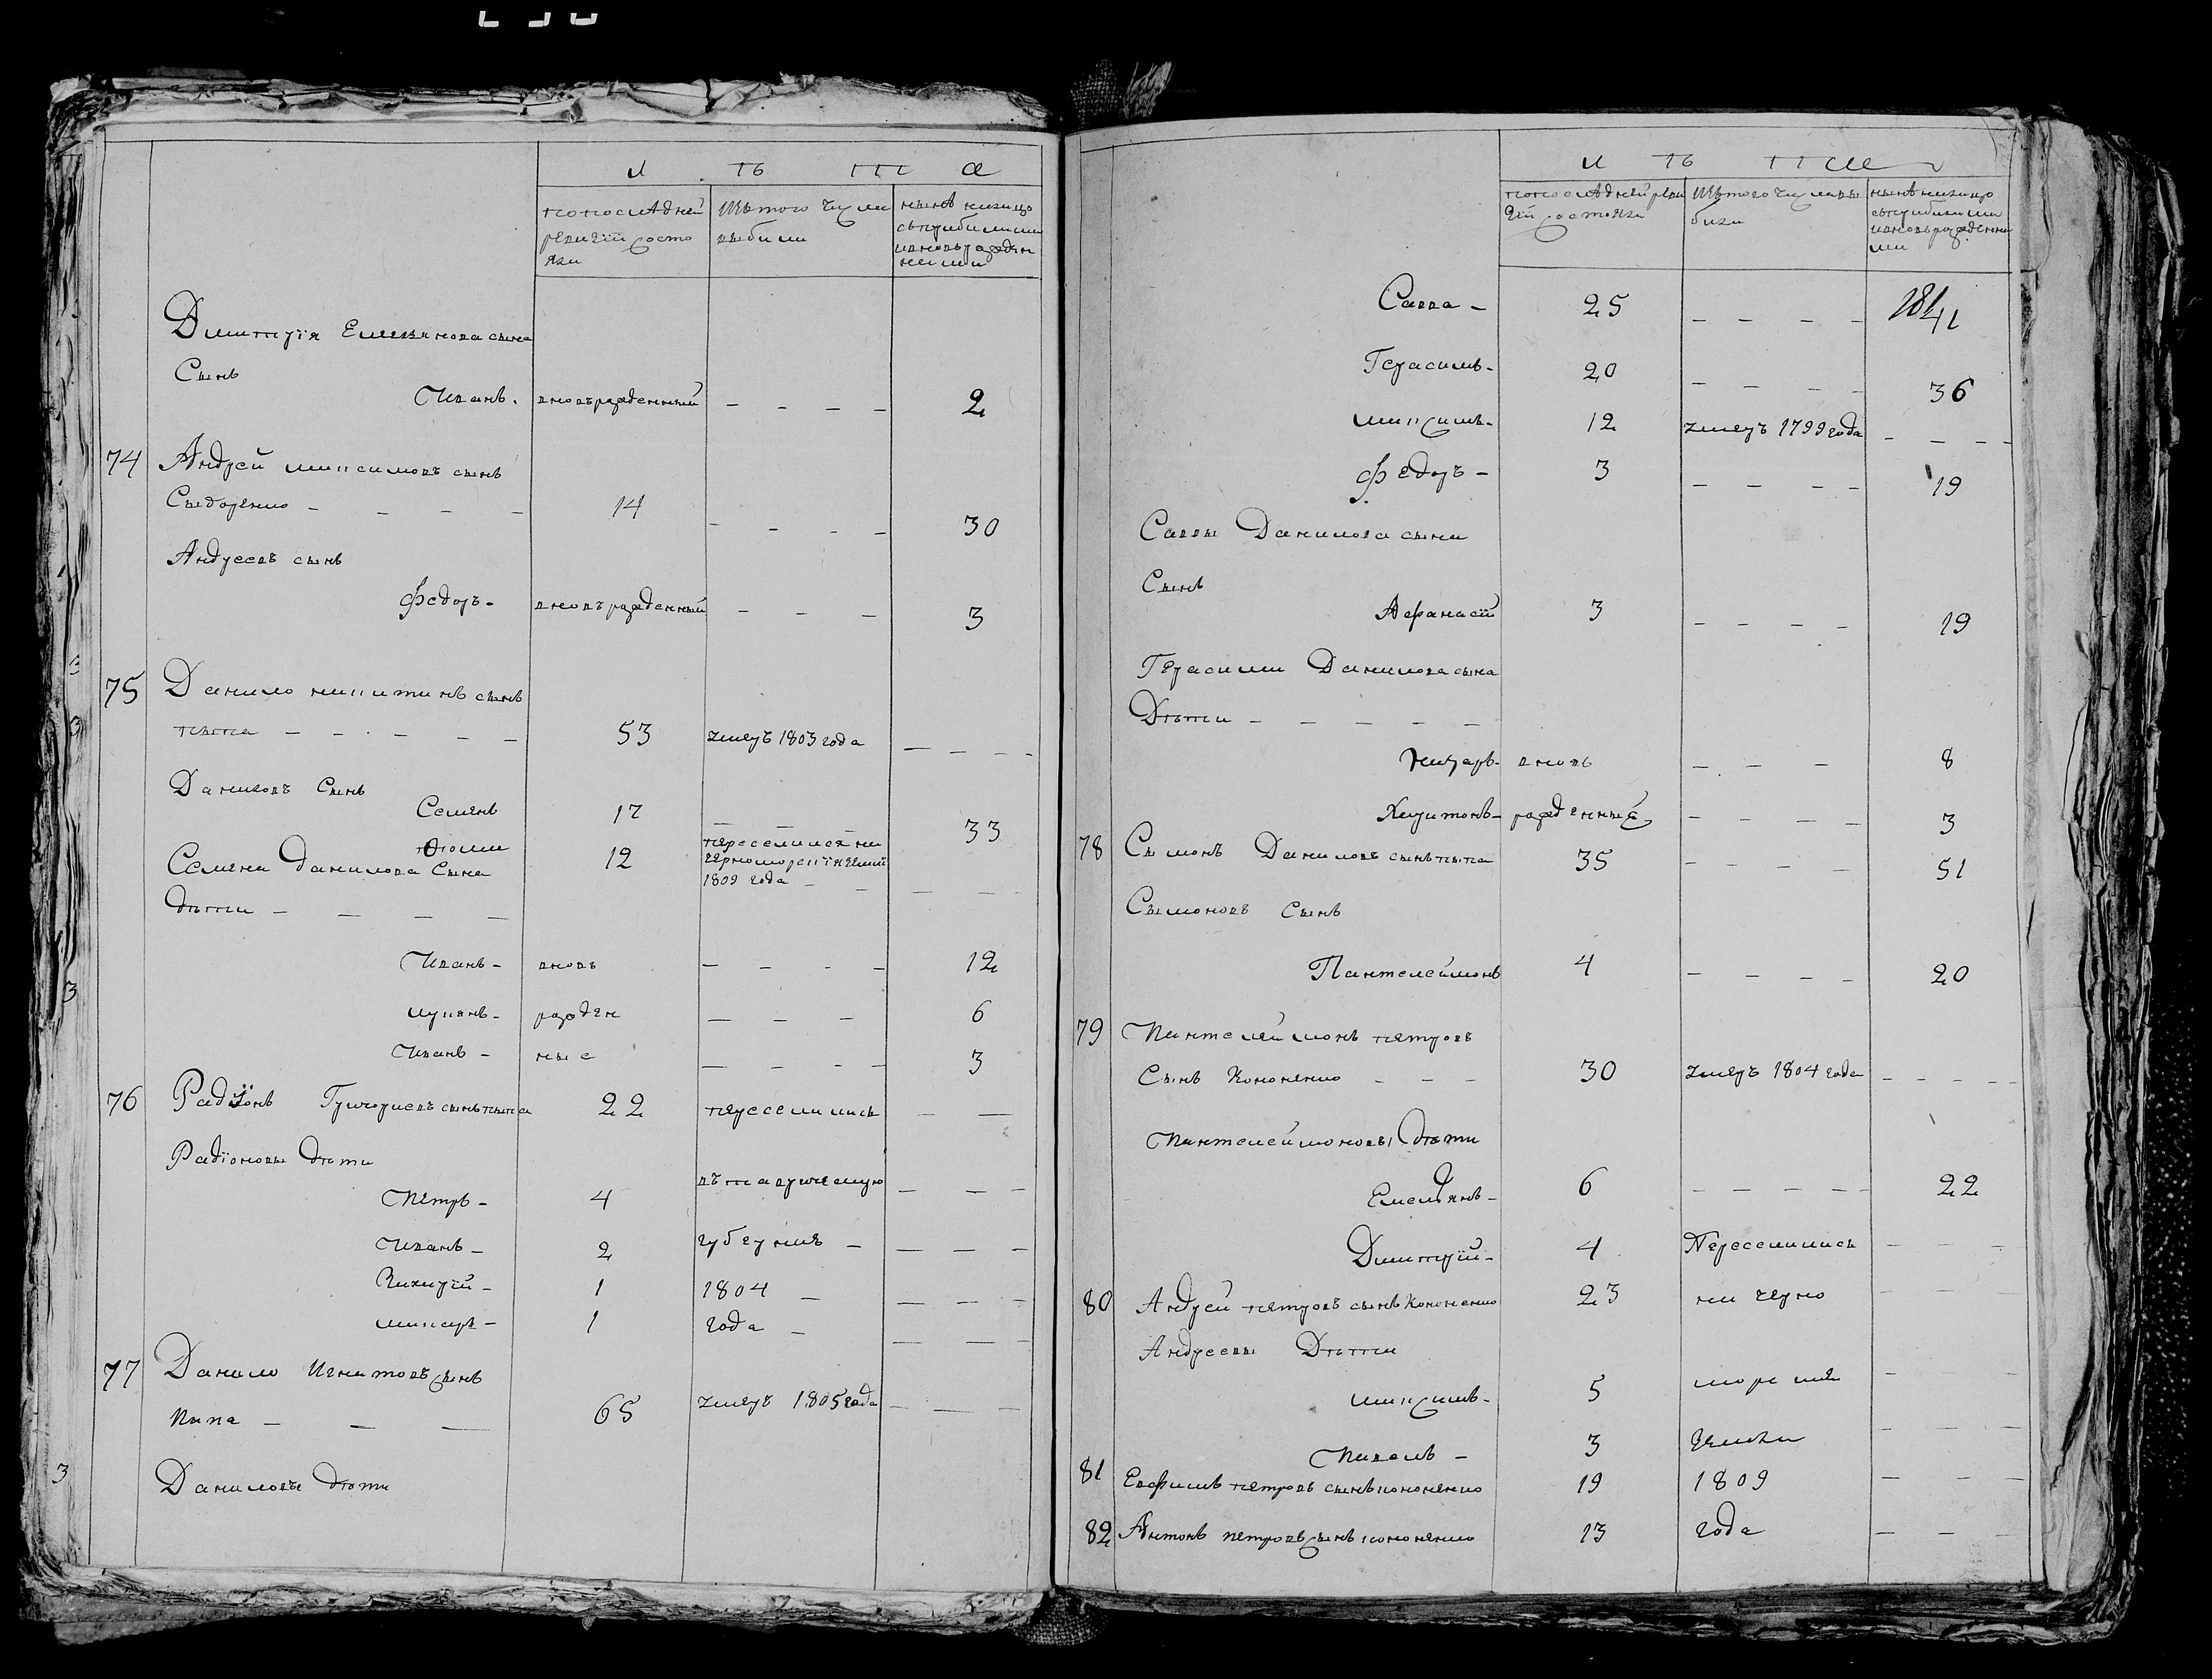 Л ѣ т а
попоследней ревизїи состояли
Изътого числа выбыли
нынѣ налицо съприбылими ивновьрожденными
Дмитрїя Емельянова сына
Сынъ
Иванъ - вновърожденный - - - - 2
74 Андрей максимовъ сынъ
Сыдоренко - - - - 14 - - - - 30
Андреевъ сынъ
Федоръ - вновърожденный - - - 3
75 Данило никитинъ сынъ
пыпа - - - - - 53 умеръ 1803 года - - - -
Даниловъ Сынъ
Семенъ 17 - - - - 33
Фома 12 переселился на черноморскїя земли 1809 года - - - -
Семена Данилова Сына
дѣти - - - -
Иванъ - вновь - - - - 12
лукянъ - рожден - - - 6
Иванъ - ные - - - - 3
76 Радїонъ Григориевъ сынъ пыпа 22 переселились - -
Радїоновы дѣти
Петръ - 4 въ таврическую - - -
Иванъ - 2 губернию - - - -
Григорїй - 1 1804 - - - -
макаръ - 1 года - - - -
77 Данило Игнатовъ сынъ
Пыпа - - - 65 умеръ 1805 года - - - -
Даниловы дѣти
Л ѣ т а
попоследней ревизїи состояли
Изътого числа выбыли
нынѣ налицо съприбылими ивновьрожденными
181
Савва - 25 - - - - 41
Герасимъ - 20 - - - - 36
максимъ - 12 умеръ 1799 года - - - -
федоръ - 3 - - - - 19
Саввы Данилова сына
Сынъ
Афанасїй 3 - - - - 19
Герасима Данилова сына
Дѣти - - - - -
Назаръ - вновь - - - 8
Харитонъ - рожденные - - - - 3
78 Сымонъ Даниловъ сынъ пыпа 35 - - - - 51
Сымоновъ Сынъ
Пантелеймонъ 4 - - - - 20
79 Пантелеймонъ петровъ
Сынъ Кононенко - - - 30 умеръ 1804 года - - - - -
Пантелеймоновы Дѣти
Емельянъ - 6 - - - - - 22
Дмитрїй - 4 Переселились - - -
80 Андрей петровъ сынъ Кононенко 23 на черно - - -
Андреевы Дѣти
максимъ - 5 морские - - -
Павелъ - 3 земли - - -
81 Евфимъ петровъ сынъ кононенко 19 1809 - - -
82 Антонъ петровъ сынъ кононенко 13 года - - -